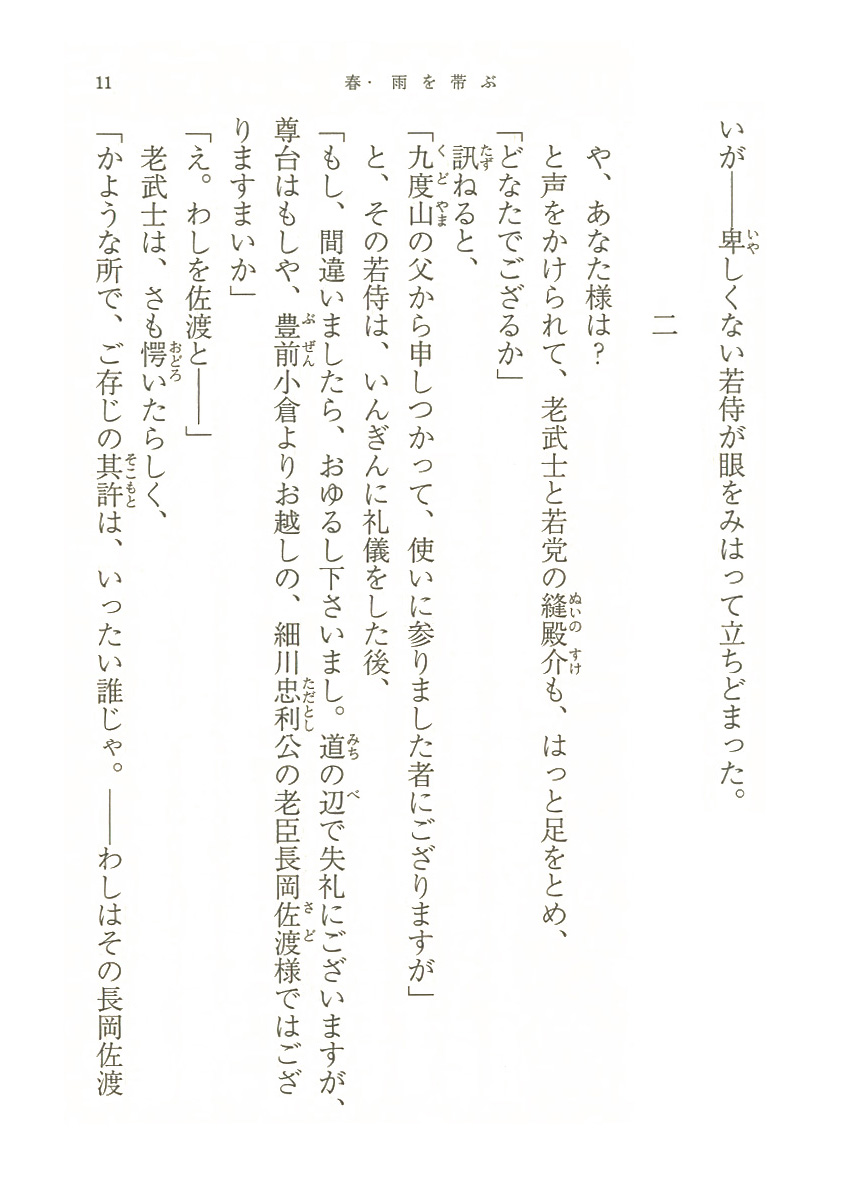 春・雨を帯ぶ
11
いが――卑しくない若侍が眼をみはって立ちどまった。
二
や、あなた様は？
と声をかけられて、老武士と若党の縫殿介も、はっと足をとめ、
「どなたでござるか」
訊ねると、
「九度山の父から申しつかって、使いに参りました者にござりますが」
と、その若侍は、いんぎんに礼儀をした後、
「もし、間違いましたら、おゆるし下さいまし。道の辺で失礼にございますが、
尊台はもしや、豊前小倉よりお越しの、細川忠利公の老臣長岡佐渡様ではござ
りますまいか」
「え。わしを佐渡と――」
老武士は、さも愕いたらしく、
「かような所で、ご存じの其許は、いったい誰じゃ。――わしはその長岡佐渡